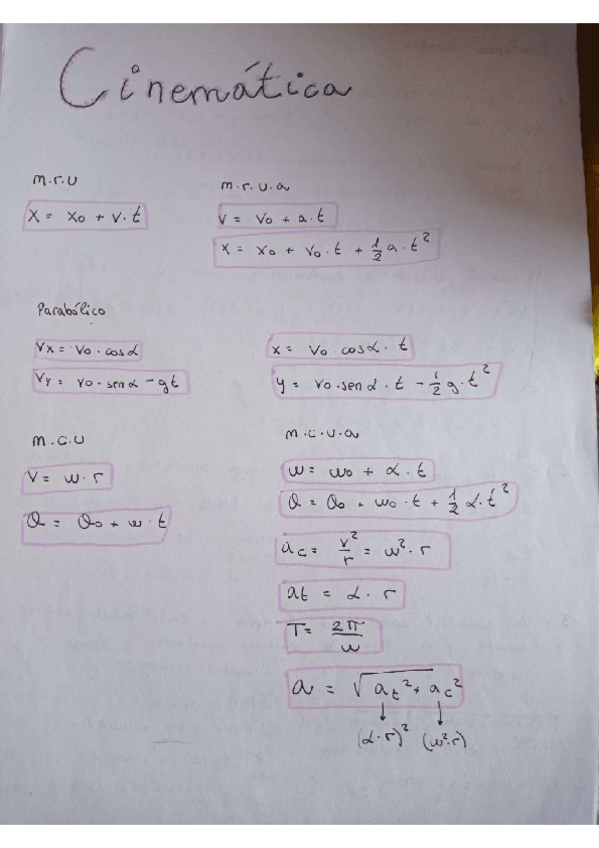 Cinemática
m.r.u
x = x₀ + v·t
m.r.u.a
v = v₀ + a·t
x = x₀ + v₀·t + 1/2 a·t²
Parabólico
vx = v₀·cosα
vy = v₀·senα - gt
x = v₀·cosα·t
y = v₀·senα·t - 1/2 g·t²
m.c.u
v = w·r
θ = θ₀ + w·t
m.c.u.a
w = w₀ + α·t
θ = θ₀ + w₀·t + 1/2 α·t²
ac = v²/r = w²·r
at = α·r
T = 2π/w
a = √(at² + ac²)
(α·r)² (w²·r)